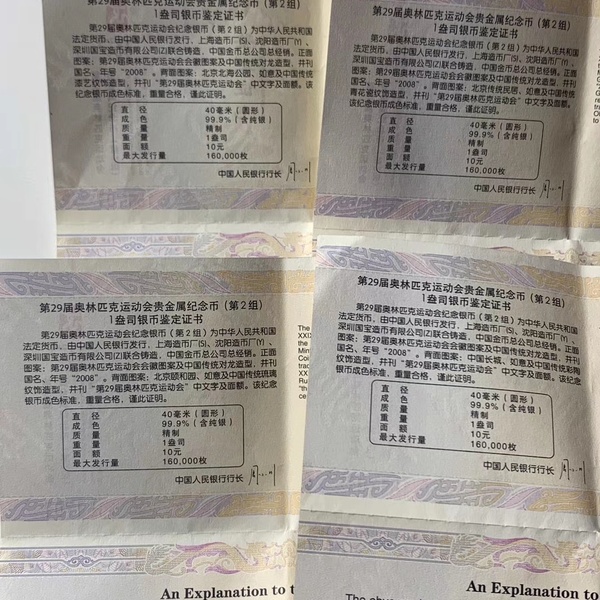 第29届奥林匹克运动会贵金属纪念币（第2组）
1盎司银币鉴定证书
第29届奥林匹克运动会纪念银币（第2组）为中华人民共和国
法定货币，由中国人民银行发行，上海造币厂(S)、沈阳造币厂(Y)、
深圳国宝造币有限公司(Z)联合铸造，中国金币总公司总经销。正面
图案：第29届奥林匹克运动会会徽图案及中国传统对龙造型，并刊
国名、年号“2008”。背面图案：北京北海公园、如意及中国传统
漆艺纹饰造型，并刊“第29届奥林匹克运动会”中文字及面额。该
纪念银币成色标准，重量合格，谨此证明。
直径 40毫米（圆形）
成色 99.9%（含纯银）
质量 精制
重量 1盎司
面额 10元
最大发行量 160,000枚
中国人民银行行长
第29届奥林匹克运动会贵金属纪念币（第2组）
1盎司银币鉴定证书
第29届奥林匹克运动会纪念银币（第2组）为中华人民共和国
法定货币，由中国人民银行发行，上海造币厂(S)、沈阳造币厂(Y)、
深圳国宝造币有限公司(Z)联合铸造，中国金币总公司总经销。正面
图案：第29届奥林匹克运动会会徽图案及中国传统对龙造型，并刊
国名、年号“2008”。背面图案：中国传统民居、如意及中国传统
青花瓷纹饰造型，并刊“第29届奥林匹克运动会”中文字及面额。
该纪念银币成色标准，重量合格，谨此证明。
直径 40毫米（圆形）
成色 99.9%（含纯银）
质量 精制
重量 1盎司
面额 10元
最大发行量 160,000枚
中国人民银行行长
第29届奥林匹克运动会贵金属纪念币（第2组）
1盎司银币鉴定证书
第29届奥林匹克运动会纪念银币（第2组）为中华人民共和国
法定货币，由中国人民银行发行，上海造币厂(S)、沈阳造币厂(Y)、
深圳国宝造币有限公司(Z)联合铸造，中国金币总公司总经销。正面
图案：第29届奥林匹克运动会会徽图案及中国传统对龙造型，并刊
国名、年号“2008”。背面图案：北京颐和园、如意及中国传统琉璃
纹饰造型，并刊“第29届奥林匹克运动会”中文字及面额。该纪念
银币成色标准，重量合格，谨此证明。
直径 40毫米（圆形）
成色 99.9%（含纯银）
质量 精制
重量 1盎司
面额 10元
最大发行量 160,000枚
中国人民银行行长
An Explanation to t
第29届奥林匹克运动会贵金属纪念币（第2组）
1盎司银币鉴定证书
第29届奥林匹克运动会纪念银币（第2组）为中华人民共和国
法定货币，由中国人民银行发行，上海造币厂(S)、沈阳造币厂(Y)、
深圳国宝造币有限公司(Z)联合铸造，中国金币总公司总经销。正面
图案：第29届奥林匹克运动会会徽图案及中国传统对龙造型，并刊
国名、年号“2008”。背面图案：中国长城、如意及中国传统彩陶
纹饰造型，并刊“第29届奥林匹克运动会”中文字及面额。该纪念
银币成色标准，重量合格，谨此证明。
直径 40毫米（圆形）
成色 99.9%（含纯银）
质量 精制
重量 1盎司
面额 10元
最大发行量 160,000枚
中国人民银行行长
An Explanation to